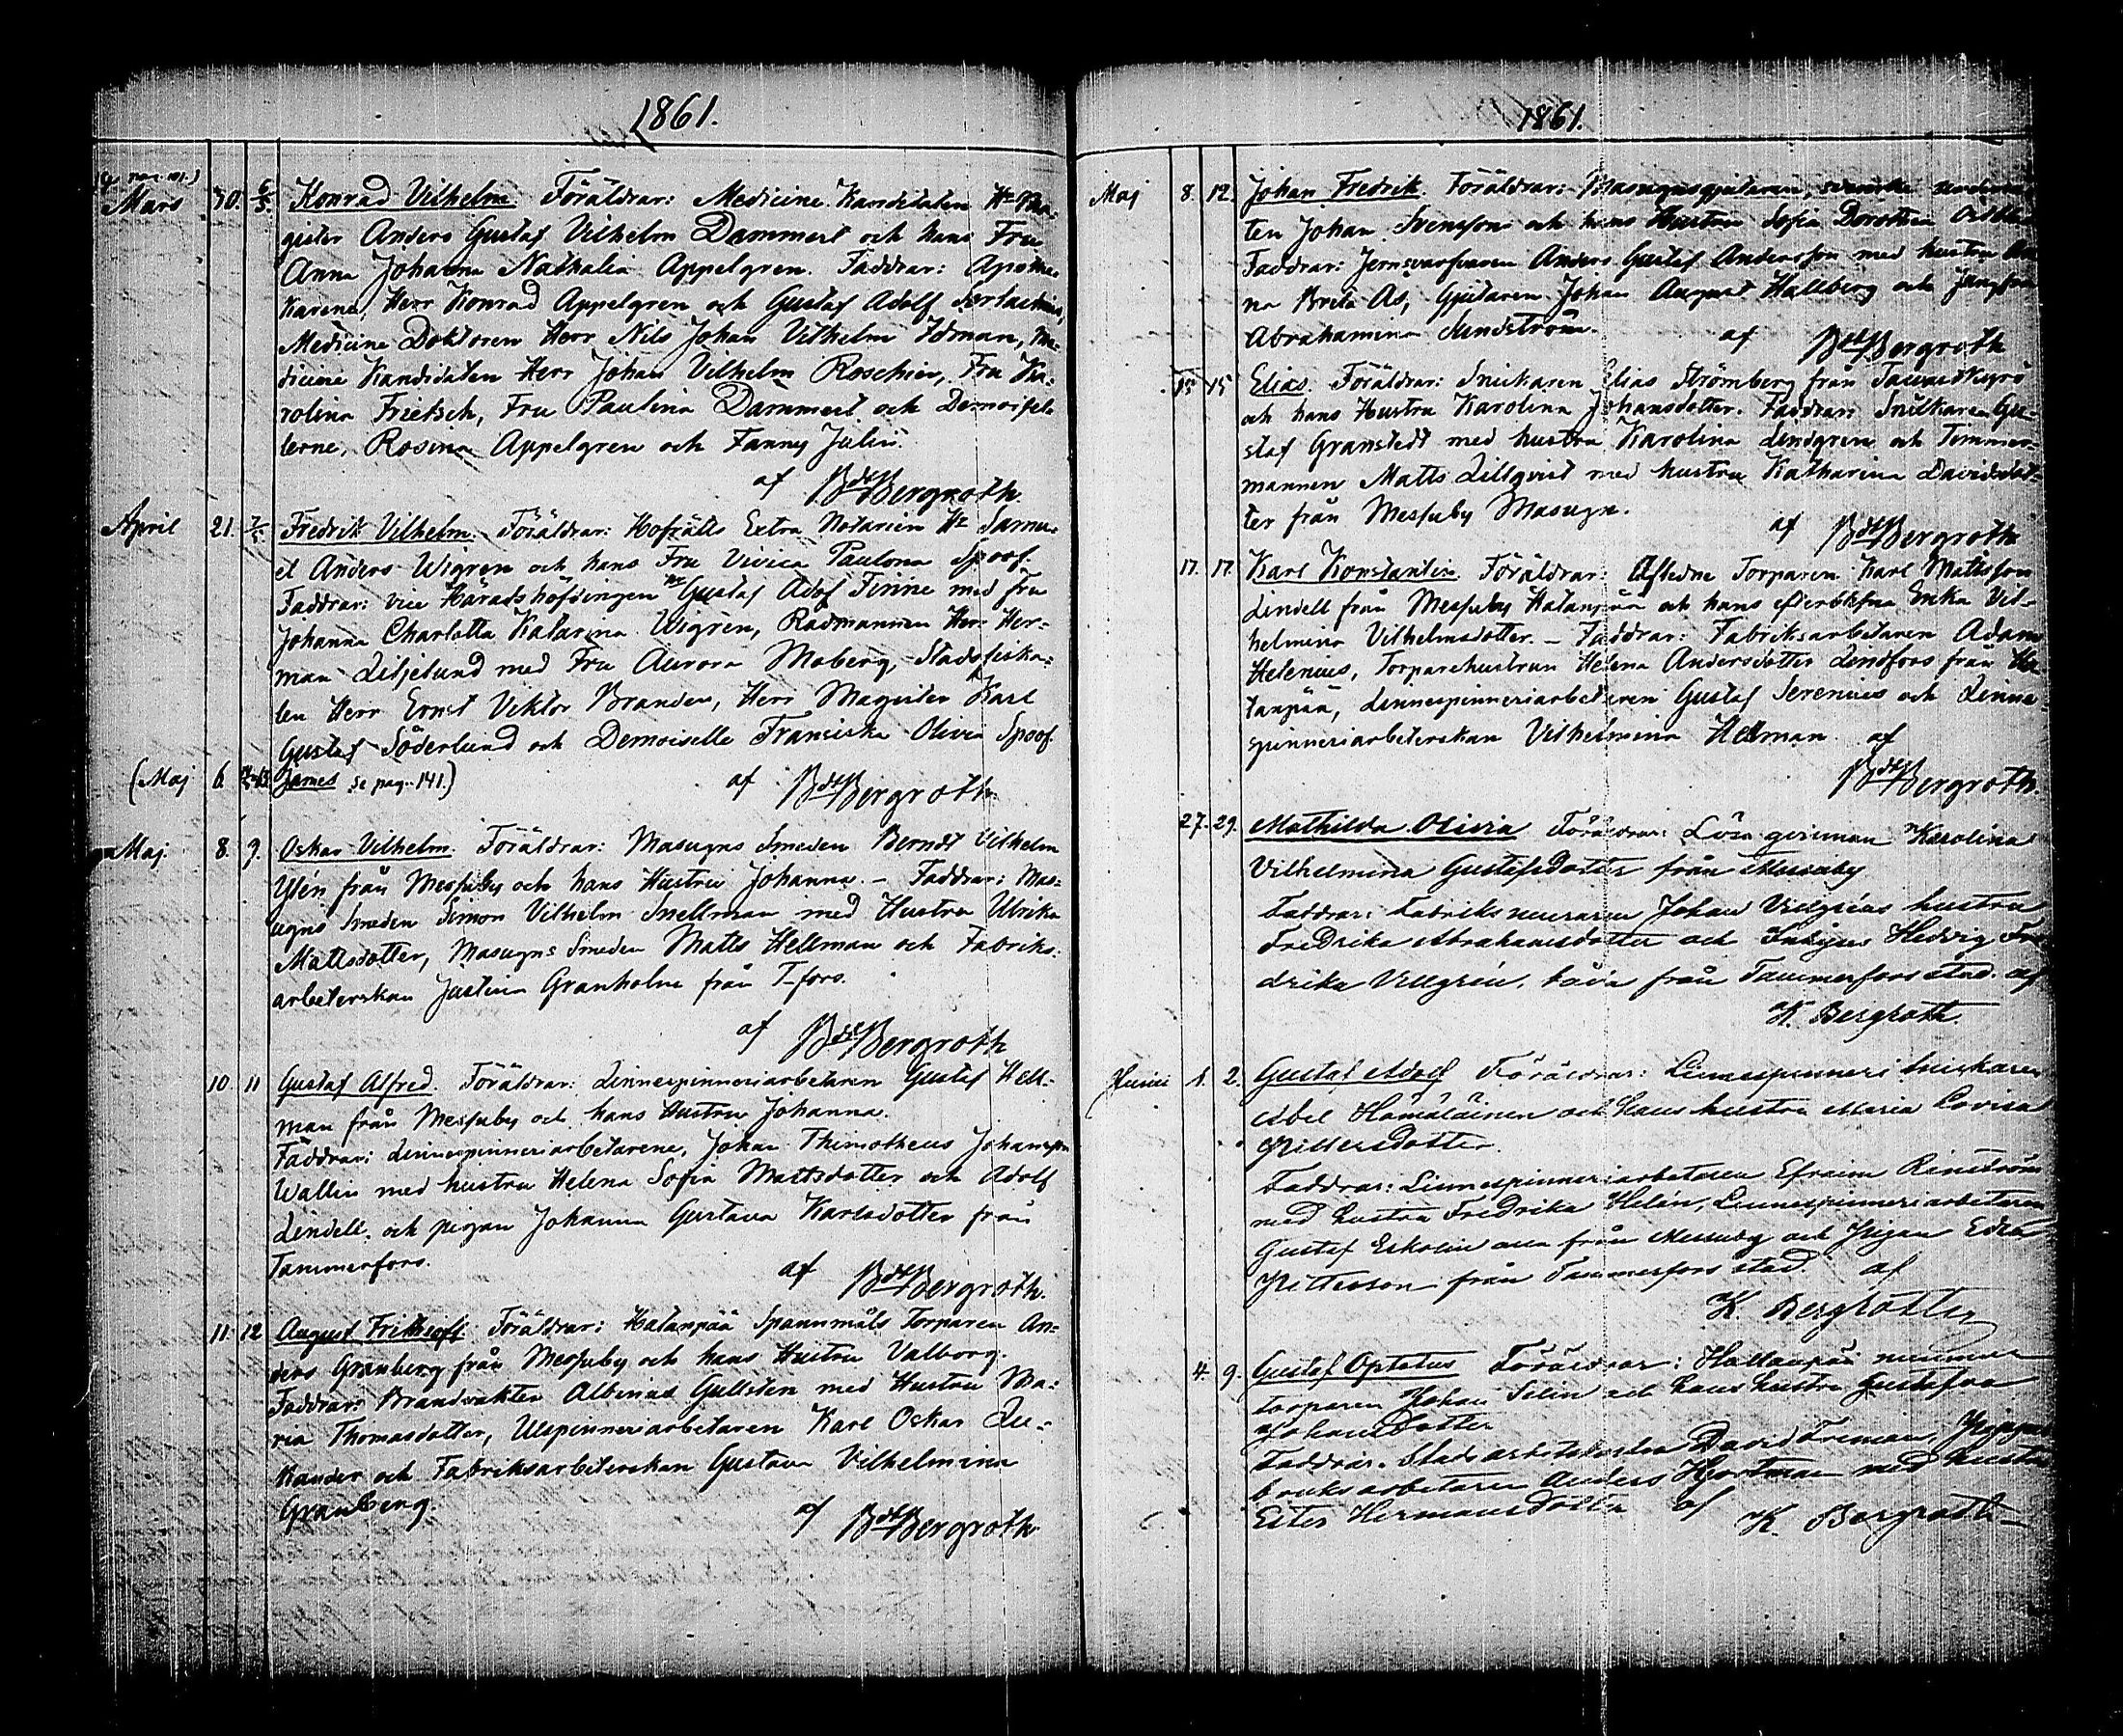 1861.
Mars 30. 6/5. Konrad Vilhelm. Föräldrar: Medicine Kandidaten Hr Ma-
gister Anders Gustaf Vilhelm Dammert och hans Fru
Anna Johanna Nathalia Appelgren. Faddrar: Apothe-
karena, Herr Konrad Appelgren och Gustaf Adolf
Medicine Doktoren Herr Nils Johan Vilhelm Idman, Me-
dicine Kandidaten Herr Johan Vilhelm Roschier, Fru Ka-
rolina Frietsch, Fru Paulina Dammert och Demoisel-
lerne, Rosina Appelgren och Fanny Julin.
af BdtBergroth.
April 21. Fredrik Vilhelm. Föräldrar: Hofrätts Extra Notarien Hr Samu-
el Anders Wigren och hans Fru Vivica Paulona Spoof.
Faddrar: vice Häradshöfdingen Hr Gustaf Adof Finne med fru
Johanna Charlotta Katarina Wigren, Rådmannen Herr Her-
man Liljelund med Fru Aurora Moberg, Stadsfiska-
len Herr Ernst Viktor Brander, Herr Magister Karl
Gustaf Söderlund och Demoiselle Fransiska Olivia Spoof.
(Maj 6. James se pag. 141.) af BdtBergroth.
Maj. 8. 9. Oskar Vilhelm. Föräldrar: Masugns Smeden Berndt Vilhelm
Ylén från Messuby och hans Hustru Johanna. – Faddrar: Mas-
ugns Smeden Simon Vilhelm Snellman med Hustru Ulrika
Mattsdotter, Masugns Smeden Matts Hellman och Fabriks-
arbeterskan Justina Granholm från T-fors.
af BdtBergroth
10. 11 Gustaf Alfred. Föräldrar: Linnespinneriarbetaren Gustaf Hell-
man från Messuby och hans Hustru Johanna.
Faddrar: Linnespinneriarbetarene, Johan Thimotheus Johansson
Wallin med hustru Helena Sofia Mattsdotter och Adolf
Lindell, och pigan Johanna Gustava Karlsdotter från
Tammerfors.
af BdtBergroth.
11. 12 August Frithioff. Föräldrar: Hatanpää Spannmåls Torparen An-
ders Granberg från Messuby och hans Hustru Valborg.
Faddrar: Brandvakten Albinus Gullsten med Hustru Ma-
ria Thomasdotter, Ulspinneriarbetaren Karl Oskar Lu-
kander och Fabriksarbeterskan Gustava Vilhelmina
Granberg.
af BdtBergroth
1861.
Maj 8. 12. Johan Fredrik. Föräldrar: Masugnsgjutaren, svenske
ten Johan Svensson och hans Hustru Sofia Dorothea
Faddrar: Jernsvarfvaren Anders Gustaf Andersson med hustru
na Brita Ås, Gjutaren Johan August Hallberg och Jungfru
Abrahamina Sundström.
af BdtBergroth
15 15 Elias. Föräldrar: Snickaren Elias Strömberg från Tavastkyrö
och hans Hustru Karolina Johansdotter. Faddrar: Snickaren Gu-
staf Granstedt med hustru Karolina Lindgren och Timmer-
mannen Matts Lillqvist med hustru Katharina Davidsdot-
ter från Messuby Masugn.
af BdtBergroth
17. 17. Karl Konstantin. Föräldrar: Aflidne Torparen Karl Mattsson
Lindell från Messuby Hatanpää och hans efterblefna Enka Vil-
helmina Vilhelmsdotter. – Faddrar: Fabriksarbetaren Adam
Helenius, Torparehustrun Helena Andersdotter Lindfors från Ha-
tanpää, Linnespinneriarbetaren Gustaf Serenius och Linne-
spinneriarbeterskan Vilhelmina Hellman. af
BdtBergroth.
27. 29. Mathilda Olivia Föräldrar: Lösa qvinnan Karolina
Vilhelmina Gustafsdotter från Messuby
Faddrar: Fabriks muraren Johan Vellgréns hustru
Fredrika Abrahamsdotter och Hedvig Fre-
drika Vellgrén, båda från Tammerfors stad. af
K. Bergroth.
Junii 1. 2. Gustaf Adolf Föräldrar: Linnespinneri Snickaren
Abel Hämäläinen och hans hustru Maria Lovisa
Faddrar: Linnespinneriarbetaren Efraim Renström
med hustru Fredrika Helén, Linnespinneriarbetaren
Gustaf Eskolin alla från Messuby och Pigan Edla
Petterson från Tammerfors stad. af
K. Bergroth
4. 9. Gustaf Optatus Föräldrar: Hattanpää
torparen Johan Selin och hans hustru Gustafva
Johansdotter
Faddrar: David
bruksarbetaren Anders Hjortman med hustru
Ester Hermansdotter af K. Bergroth